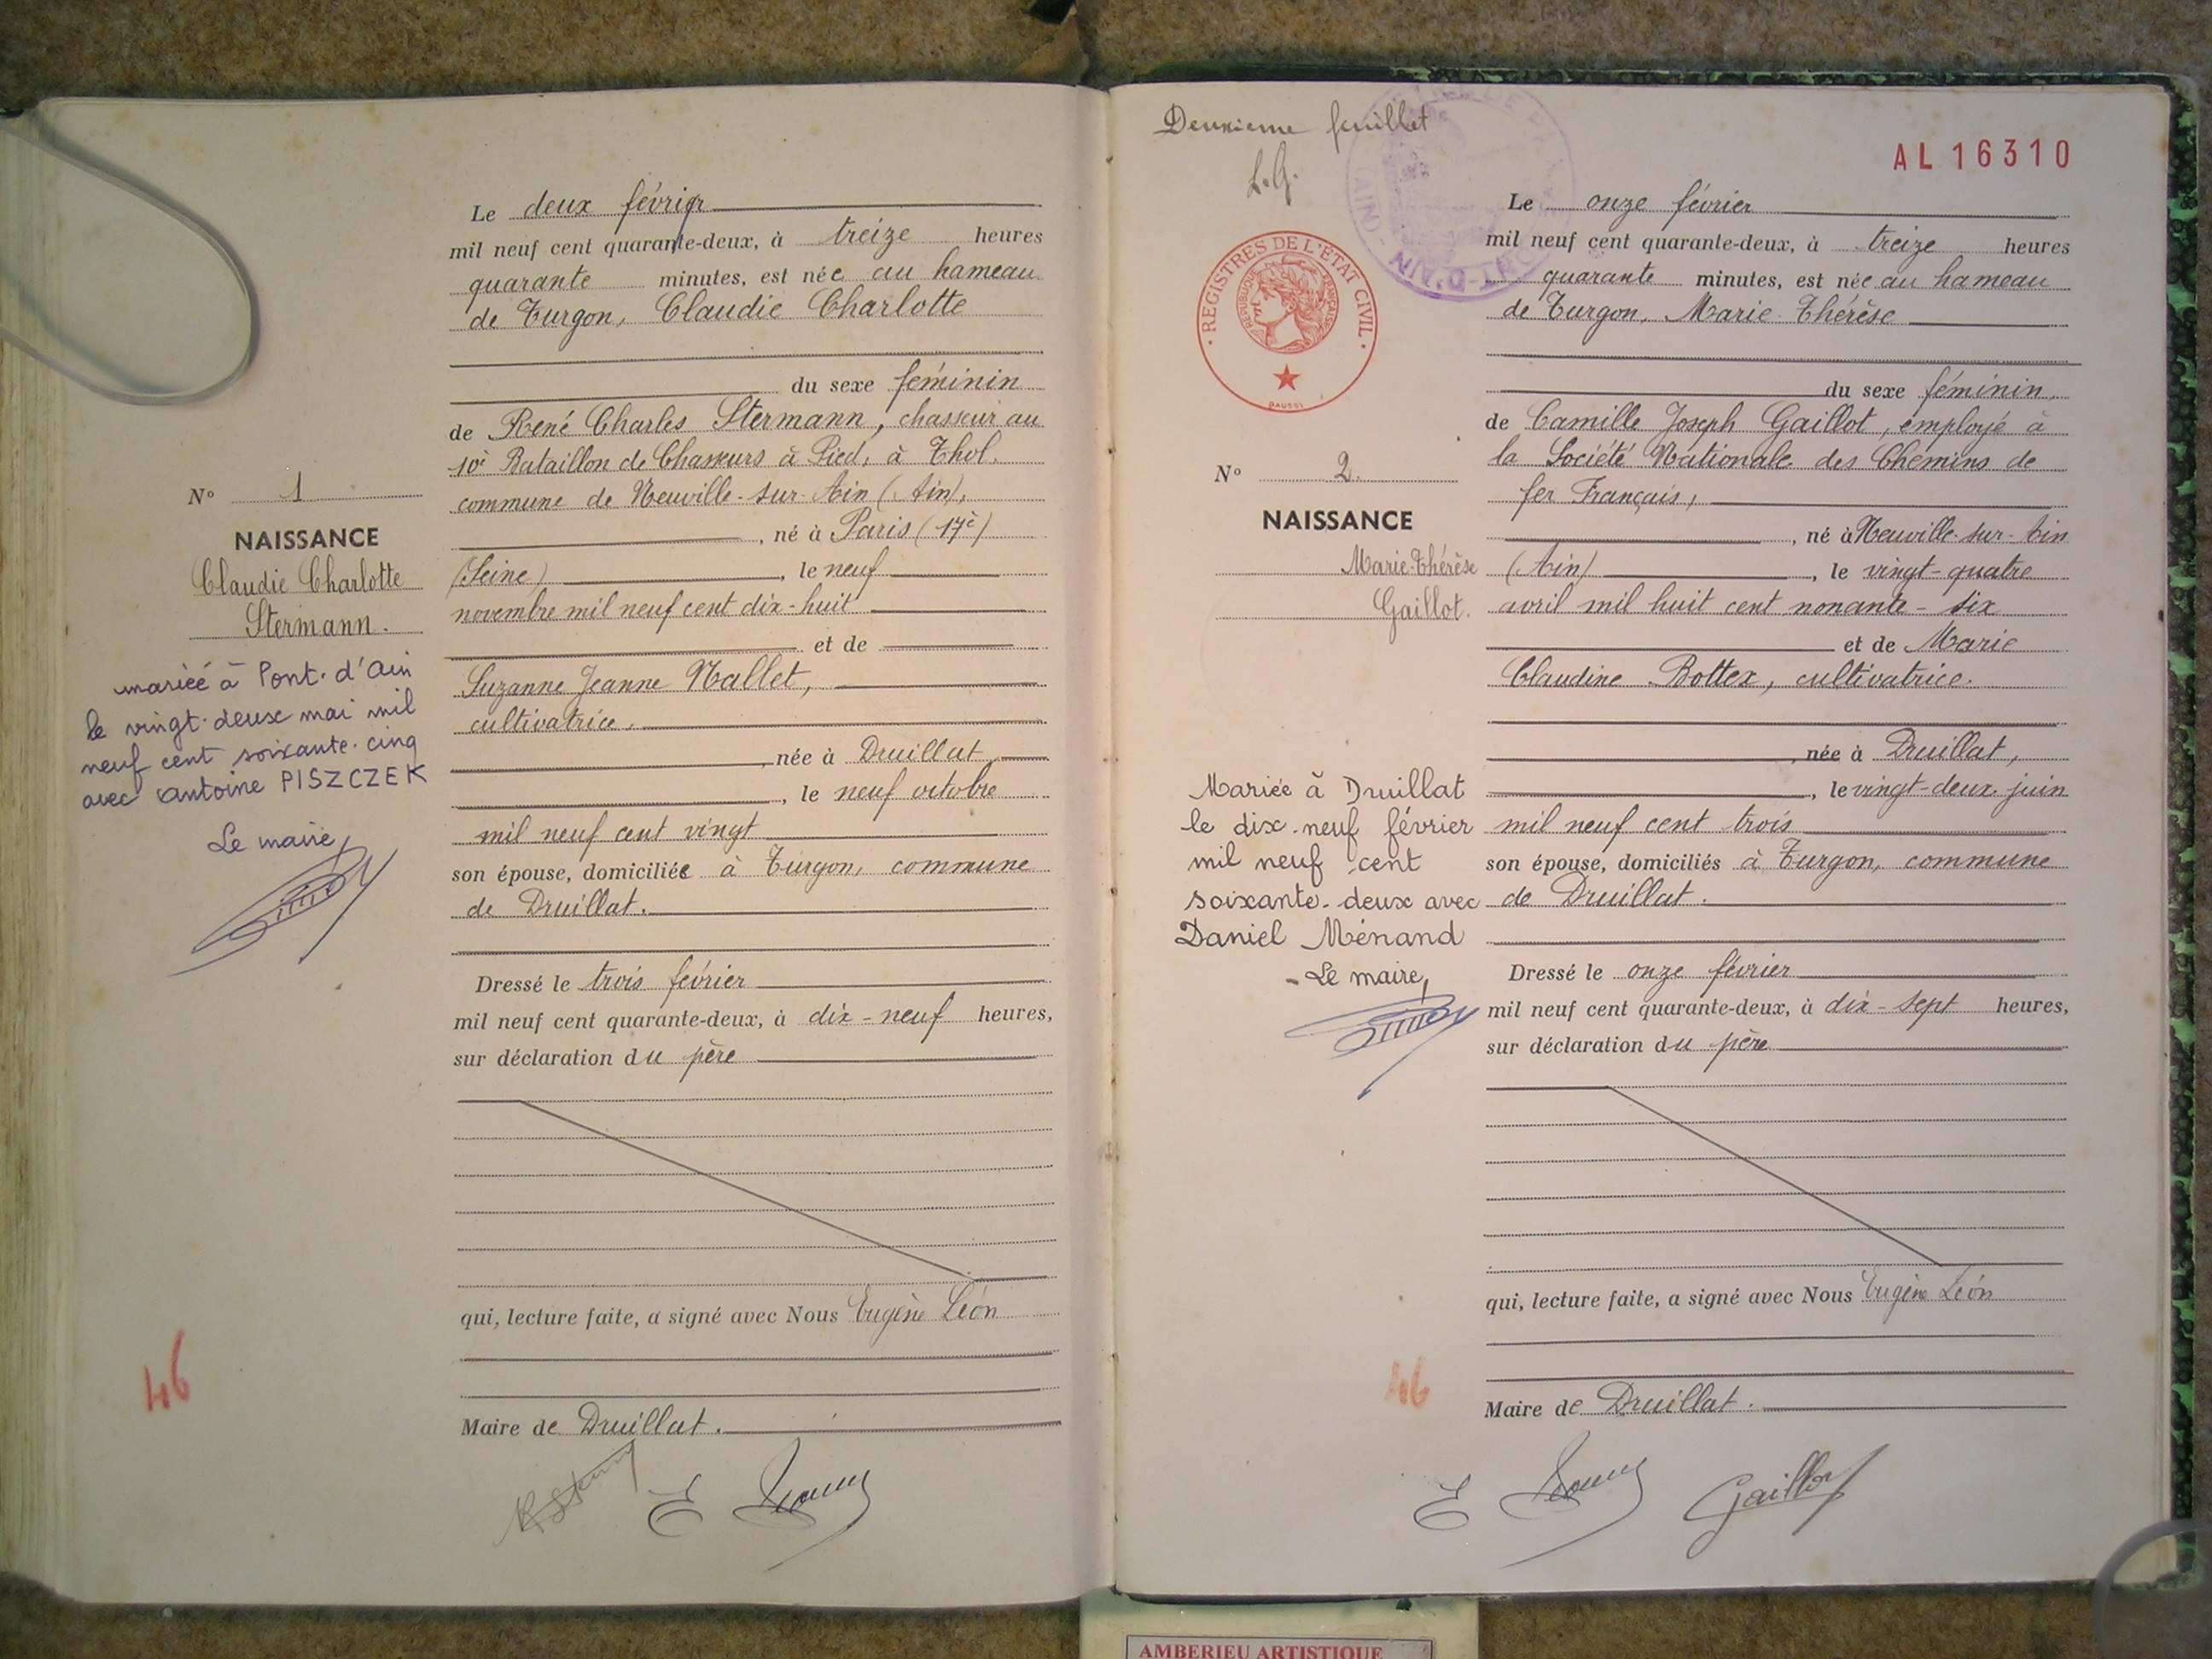 Le deux février
mil neuf cent quarante-deux, à treize heures
quarante minutes, est née au hameau
de Turgon, Claudie Charlotte
du sexe féminin
de René Charles Stermann, chasseur au
10è Bataillon de Chasseurs à Pied, à Thol,
commune de Neuville-sur-Ain (Ain),
, né à Paris (17è)
(Seine) , le neuf
novembre mil neuf cent dix-huit
et de
Suzanne Jeanne Nallet,
cultivatrice,
née à Druillat
, le neuf octobre
mil neuf cent vingt
son épouse, domiciliée à Turgon, commune
de Druillat.
Dressé le trois février
mil neuf cent quarante-deux, à dix-neuf heures,
sur déclaration du père
qui, lecture faite, a signé avec Nous Eugène Léon
Maire de Druillat.
N° 1
NAISSANCE
Claudie Charlotte
Stermann.
mariée à Pont-d'Ain
le vingt-deux mai mil
neuf cent soixante-cinq
avec Antoine PISZCZEK
Le maire,
46
Deuxieme feuillet
L.G.
AL 16310
REGISTRES DE L'ÉTAT CIVIL
RÉPUBLIQUE FRANÇAISE
Le onze février
mil neuf cent quarante-deux, à treize heures
quarante minutes, est née au hameau
de Turgon, Marie-Thérèse
du sexe féminin,
de Camille Joseph Gaillot, employé à
la Société Nationale des Chemins de
fer Français,
, né à Neuville-sur-Ain
(Ain) , le vingt-quatre
avril mil huit cent nonante-six
et de Marie
Claudine Bottex, cultivatrice.
née à Druillat,
, le vingt-deux juin
mil neuf cent trois
son épouse, domiciliés à Turgon, commune
de Druillat.
Dressé le onze février
mil neuf cent quarante-deux, à dix-sept heures,
sur déclaration du père
qui, lecture faite, a signé avec Nous Eugène Léon
Maire de Druillat.
Gaillot
N° 2.
NAISSANCE
Marie-Thérèse
Gaillot.
Mariée à Druillat
le dix-neuf février
mil neuf cent
soixante-deux avec
Daniel Ménand
Le maire,
46
AMBERIEU ARTISTIQUE